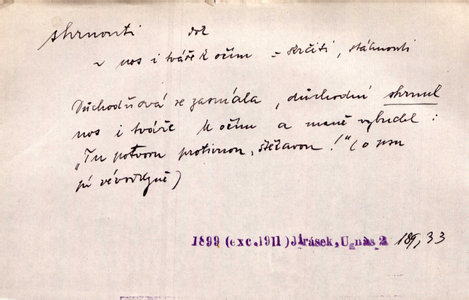 shrnouti dok
~ nos i tváře k očím = skrčiti, stáhnouti
Důchodňová se zasmála, důchodní shrnul
nos i tváře k očím a maně vybuchl:
„Tu potvoru protivnou, štěkavou!“ (o psu
vévodkyně)
1899 (exc. 1911) Jirásek, U nás 2 189, 33